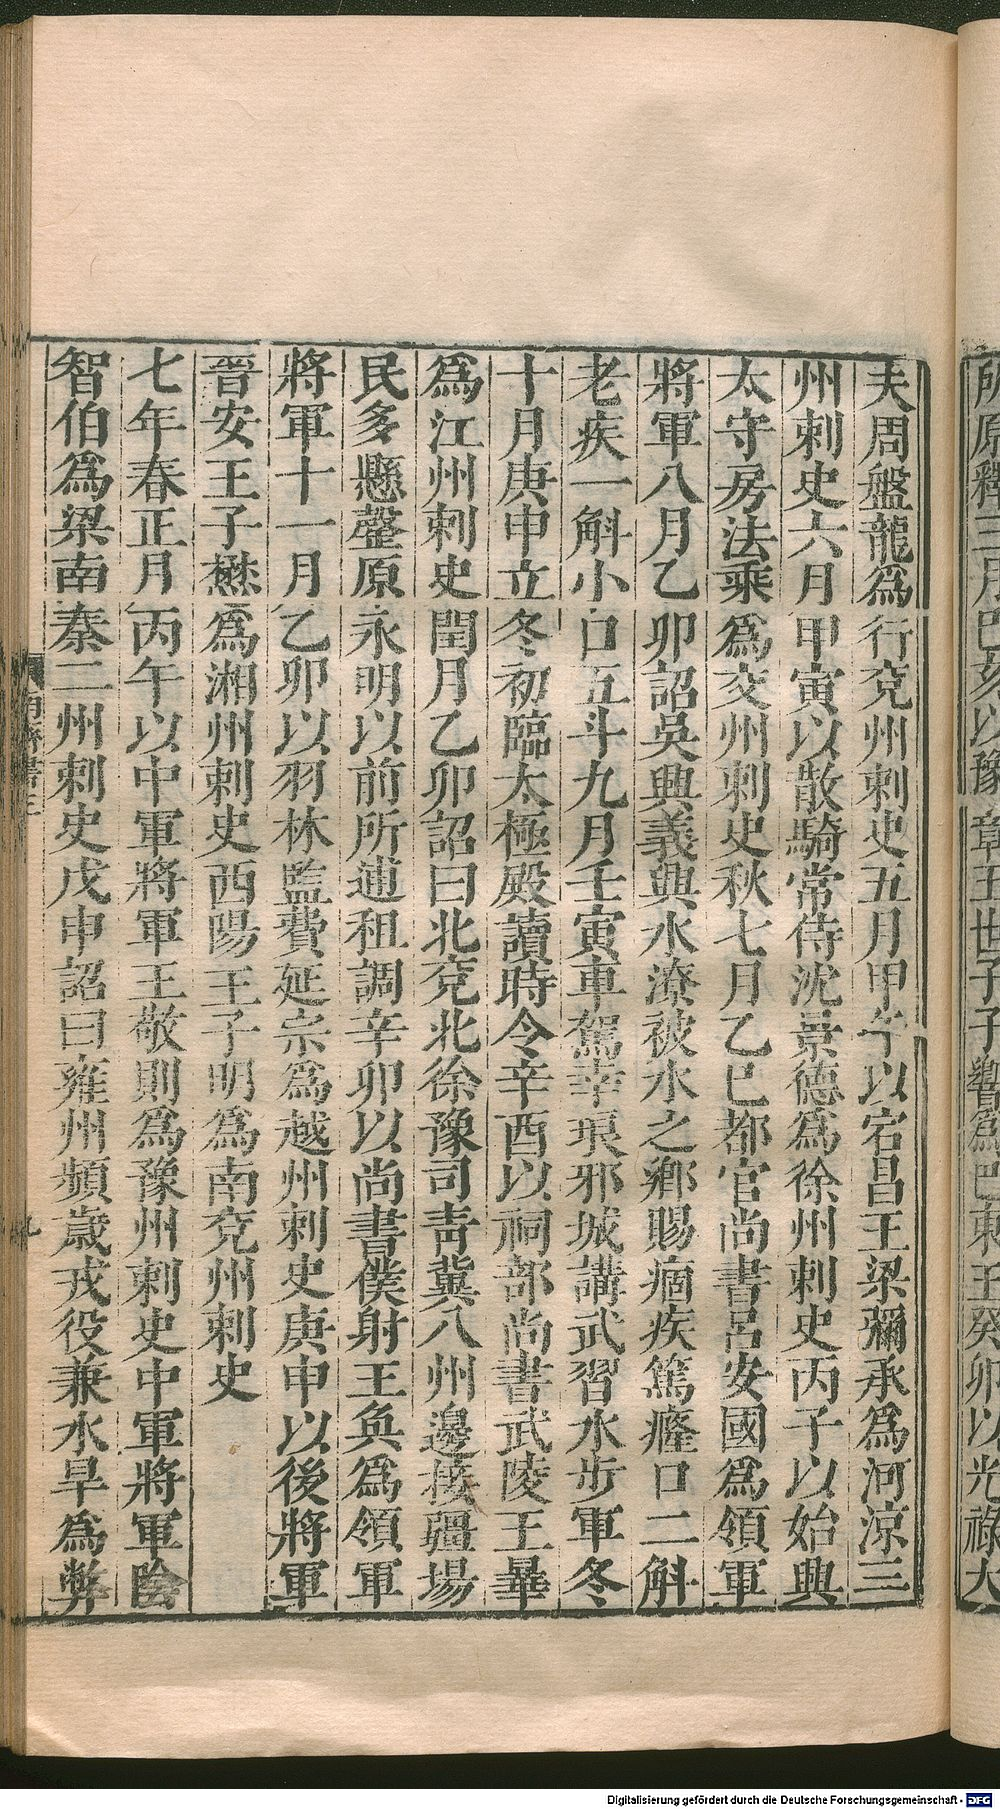 所原釋三月己亥以豫章王世子子響爲巴東王癸卯以光祿大
夫周盤龍爲行兖州刺史五月甲午以宕昌王梁彌承爲河涼三
州刺史六月甲寅以散騎常侍沈景德爲徐州刺史丙子以始興
太守房法乘爲交州刺史秋七月乙巳都官尚書呂安國爲領軍
將軍八月乙卯詔吳興義興水潦被水之鄉賜痼疾篤癃口二斛
老疾一斛小口五斗九月壬寅車駕幸琅邪城講武習水步軍冬
十月庚申立冬初臨太極殿讀時令辛酉以祠部尚書武陵王曅
爲江州刺史閏月乙卯詔曰北兖北徐豫司靑冀八州邊接疆場
民多懸罄原永明以前所逋租調辛卯以尚書僕射王奐爲領軍
將軍十一月乙卯以羽林監費延宗爲越州刺史庚申以後將軍
晉安王子懋爲湘州刺史西陽王子明爲南兖州刺史
七年春正月丙午以中軍將軍王敬則爲豫州刺史中軍將軍陰
智伯爲梁南秦二州刺史戊申詔曰雍州頻歲戎役兼水旱爲弊
南齊書三
九
Digitalisierung gefördert durch die Deutsche Forschungsgemeinschaft - DFG